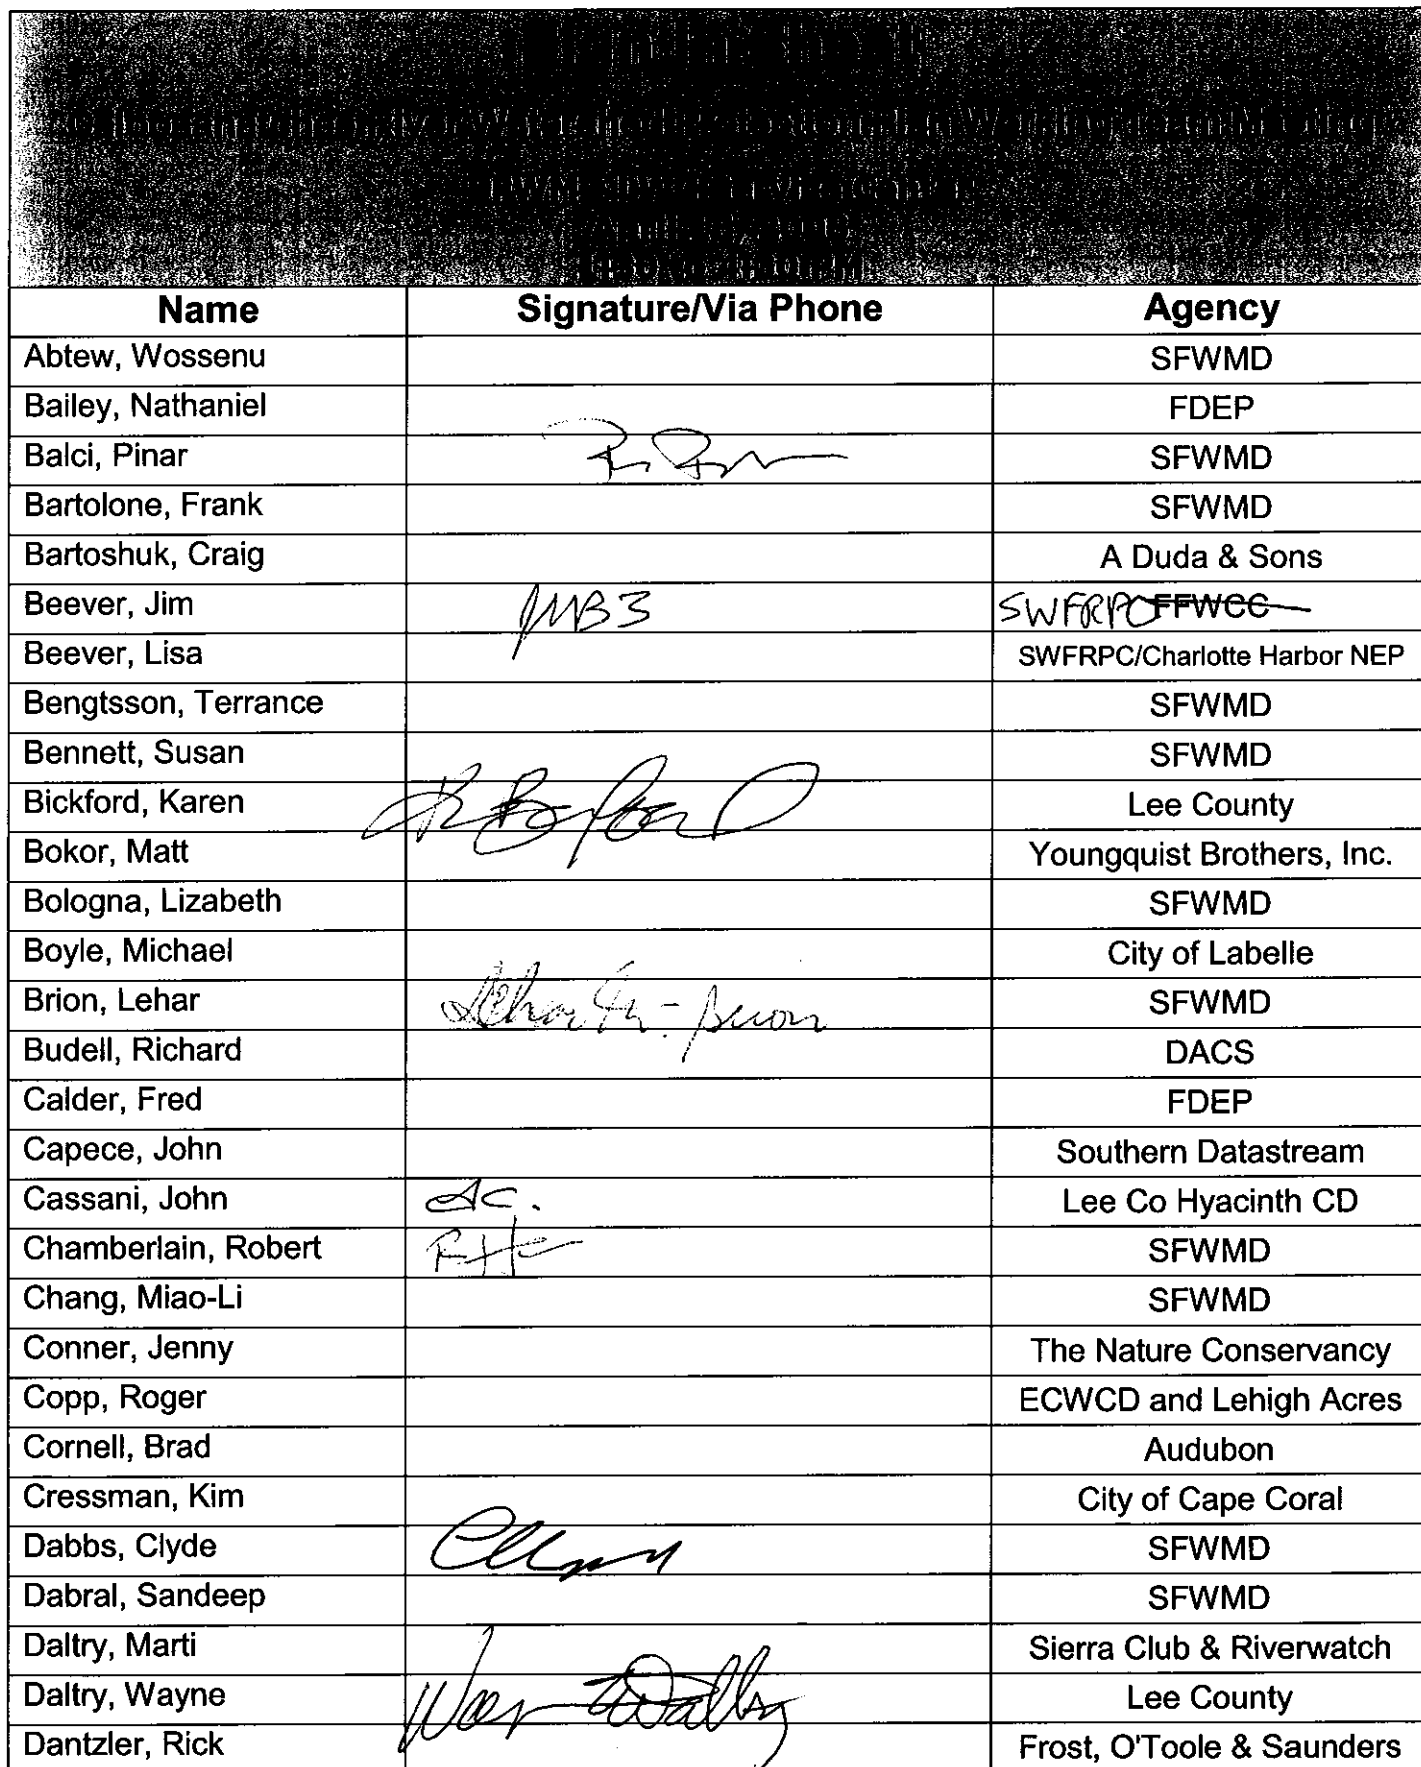 Name Signature/Via Phone Agency
Abtew, Wossenu SFWMD
Bailey, Nathaniel FDEP
Balci, Pinar SFWMD
Bartolone, Frank SFWMD
Bartoshuk, Craig A Duda & Sons
Beever, Jim JMB3 SWFRPC FFWCC
Beever, Lisa SWFRPC/Charlotte Harbor NEP
Bengtsson, Terrance SFWMD
Bennett, Susan SFWMD
Bickford, Karen Lee County
Bokor, Matt Youngquist Brothers, Inc.
Bologna, Lizabeth SFWMD
Boyle, Michael City of Labelle
Brion, Lehar SFWMD
Budell, Richard DACS
Calder, Fred FDEP
Capece, John Southern Datastream
Cassani, John Lee Co Hyacinth CD
Chamberlain, Robert SFWMD
Chang, Miao-Li SFWMD
Conner, Jenny The Nature Conservancy
Copp, Roger ECWCD and Lehigh Acres
Cornell, Brad Audubon
Cressman, Kim City of Cape Coral
Dabbs, Clyde SFWMD
Dabral, Sandeep SFWMD
Daltry, Marti Sierra Club & Riverwatch
Daltry, Wayne Lee County
Dantzler, Rick Frost, O'Toole & Saunders